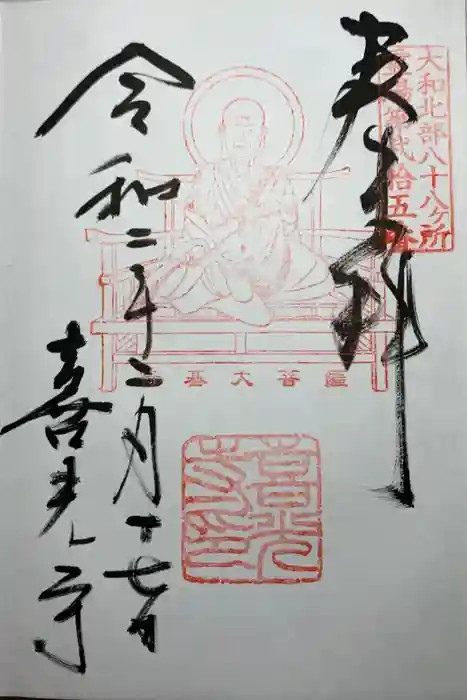 大和北部八十八ヶ所
霊場第弐拾五番
奉拝
行基大菩薩
喜光
寺印
令和二年二月十七日
喜光寺